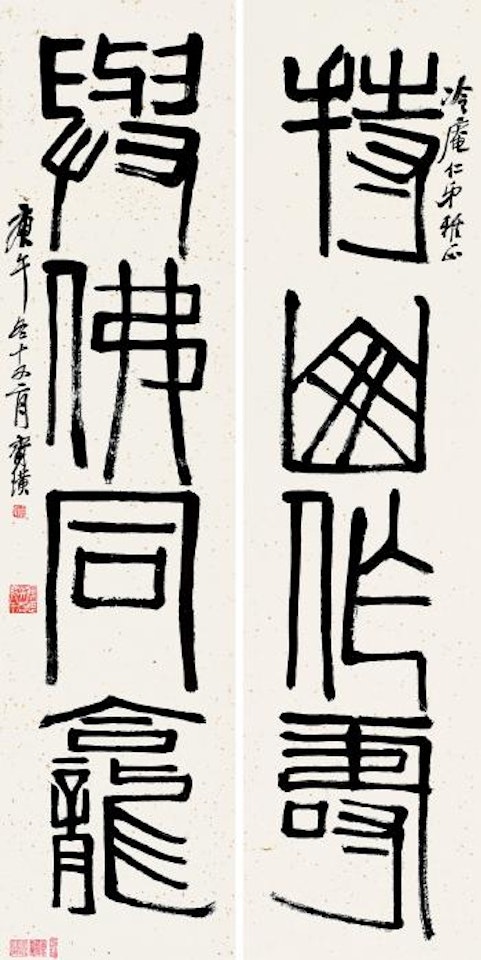 冷庵仁弟雅正
持山作壽
與佛同龕
庚午冬十又二月齊璜